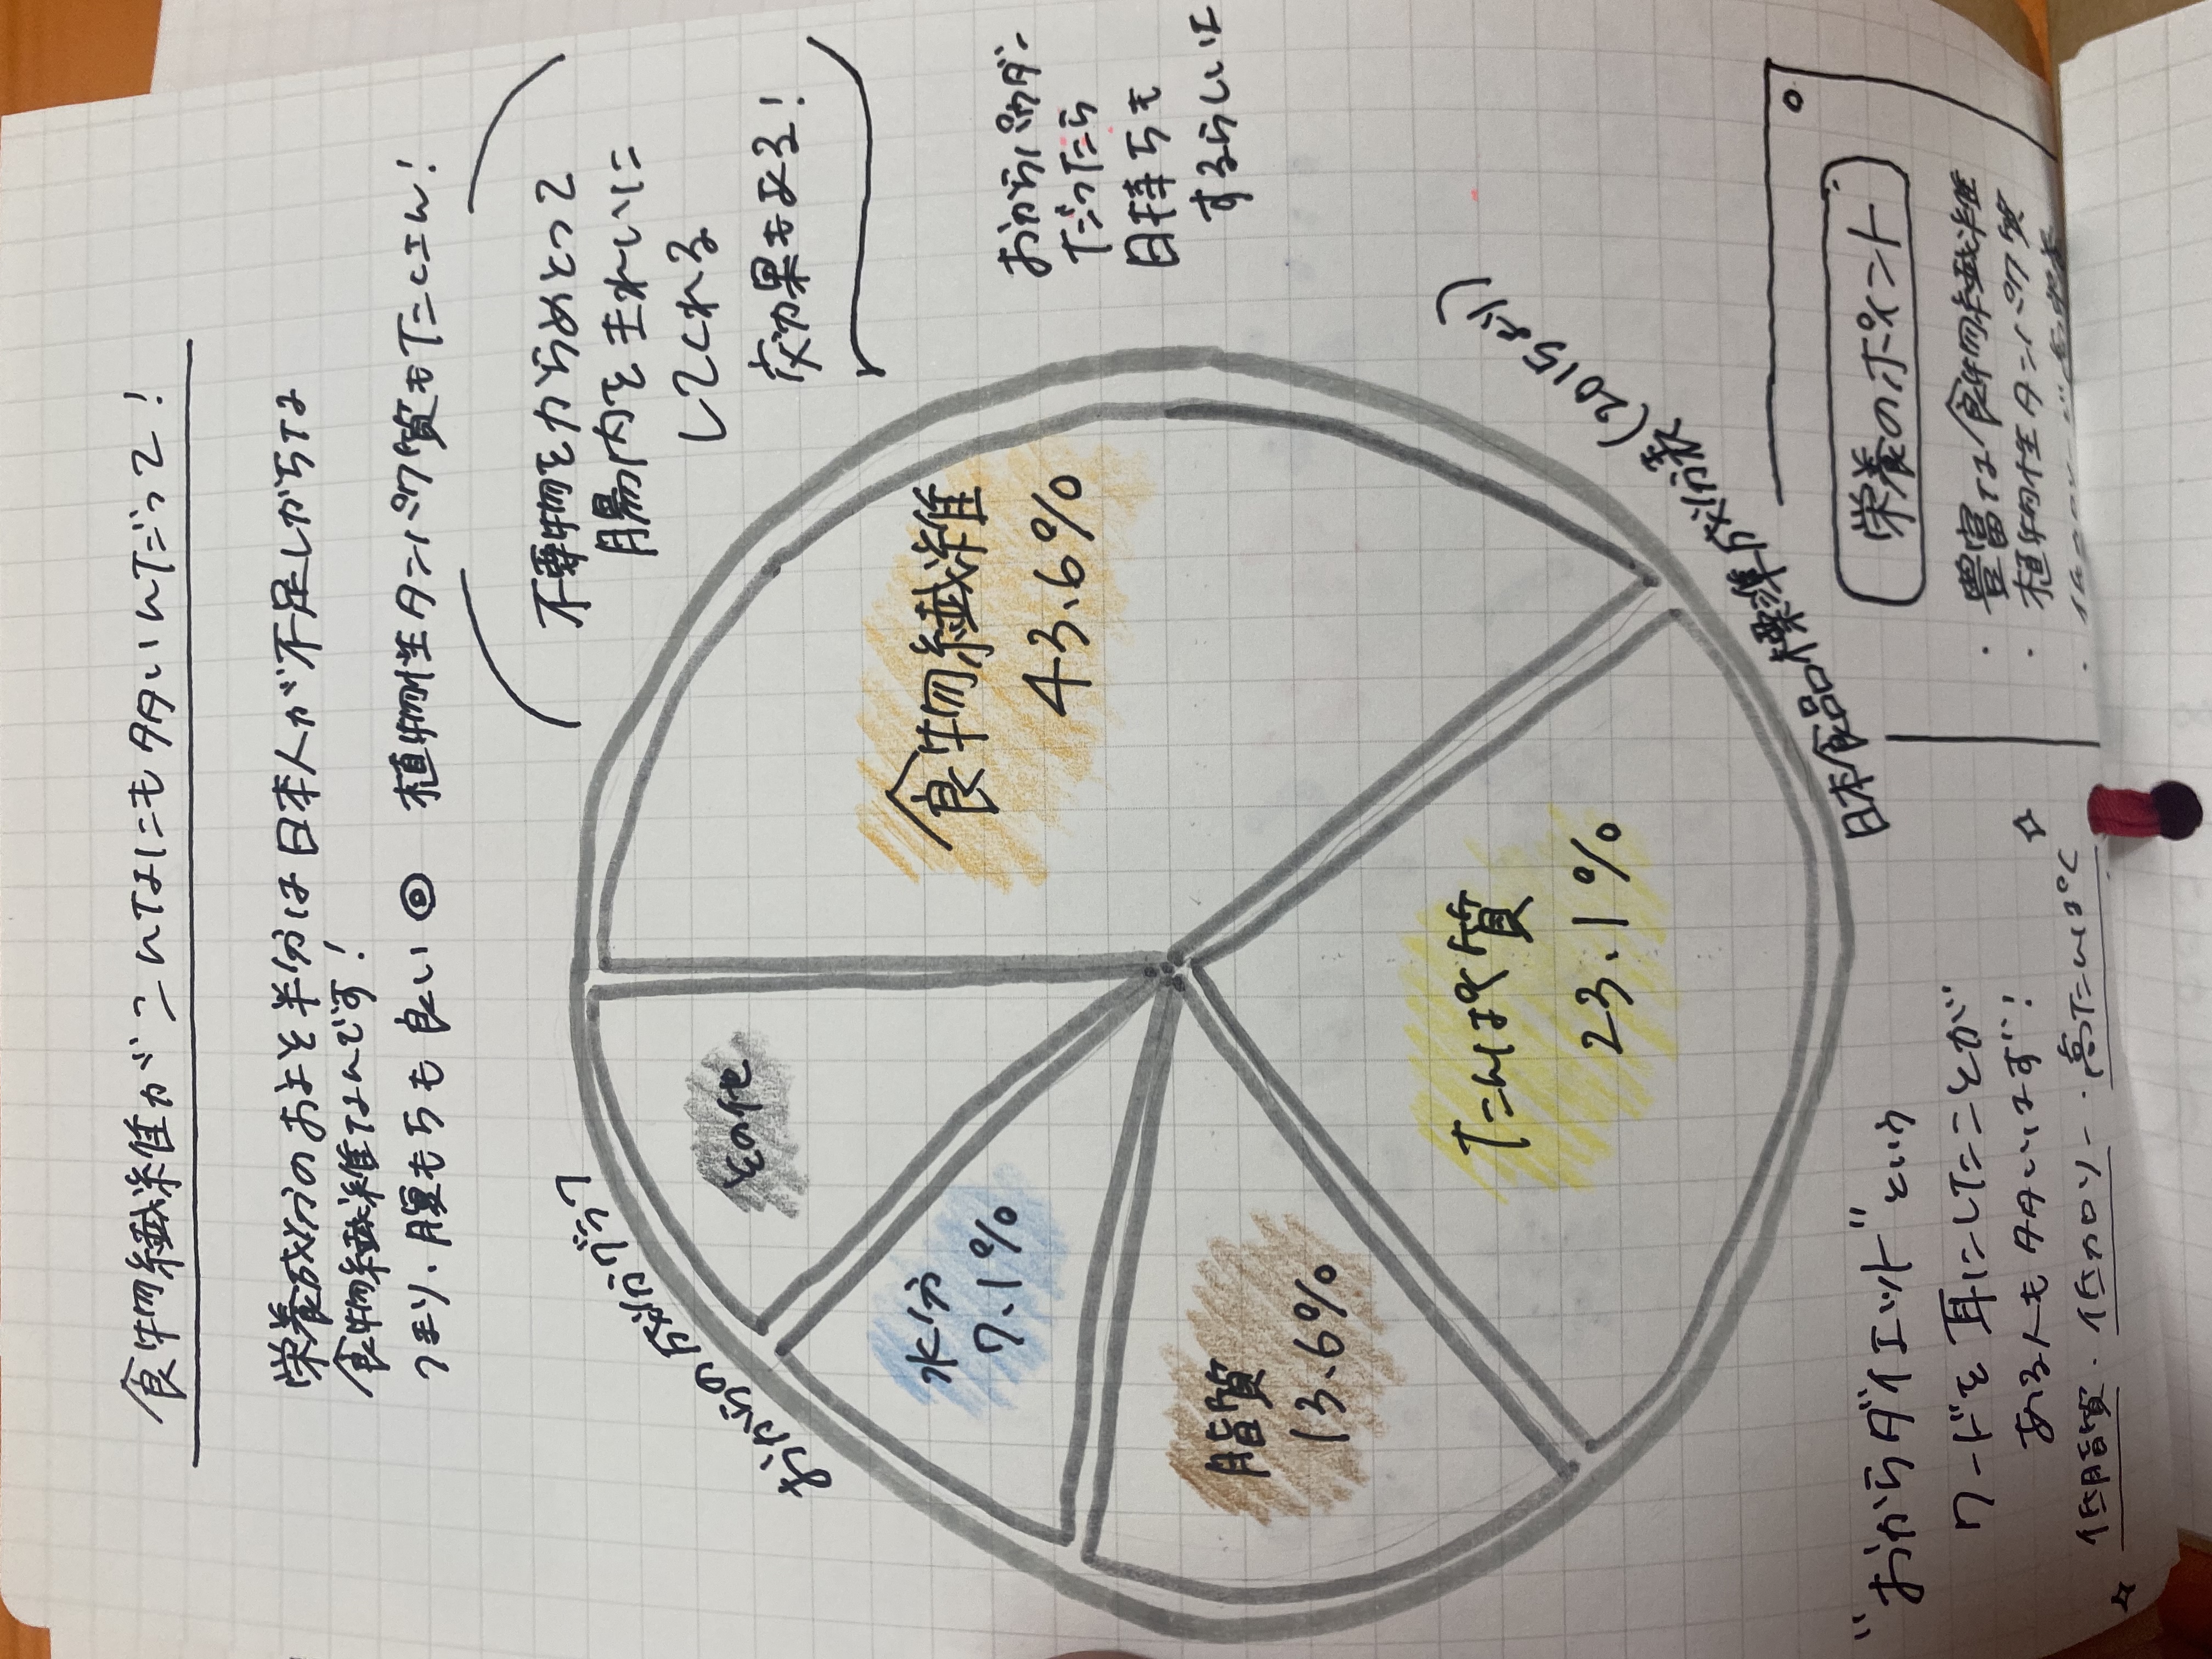 食物繊維がこんなにも多いんだって!
栄養成分のおよそ半分は日本人が不足しがちな
食物繊維なんです!
つまり、腹もちも良い◎ 植物性タンパク質もたくさん!
不要物をからめとって
腸内をきれいに
してくれる
効果もある!
おからの成分グラフ
その他
水分
7.1%
食物繊維
43.6%
おからパウダー
だったら
日持ちも
するらしいよ
脂質
13.6%
たんぱく質
23.1%
日本食品標準成分表(2015より)
"おからダイエット"という
ワードを耳にしたことが
ある人も多いはず!
低脂質・低カロリー・高たんぱく
栄養のポイント
・豊富な食物繊維
・植物性タンパク質